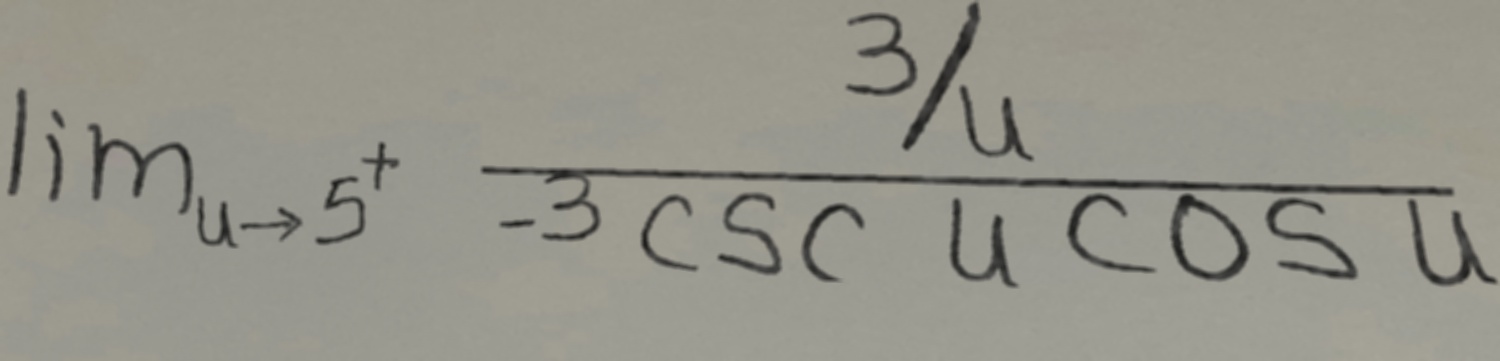 lim_{u→5^+} \frac{3/u}{-3 csc u cos u}